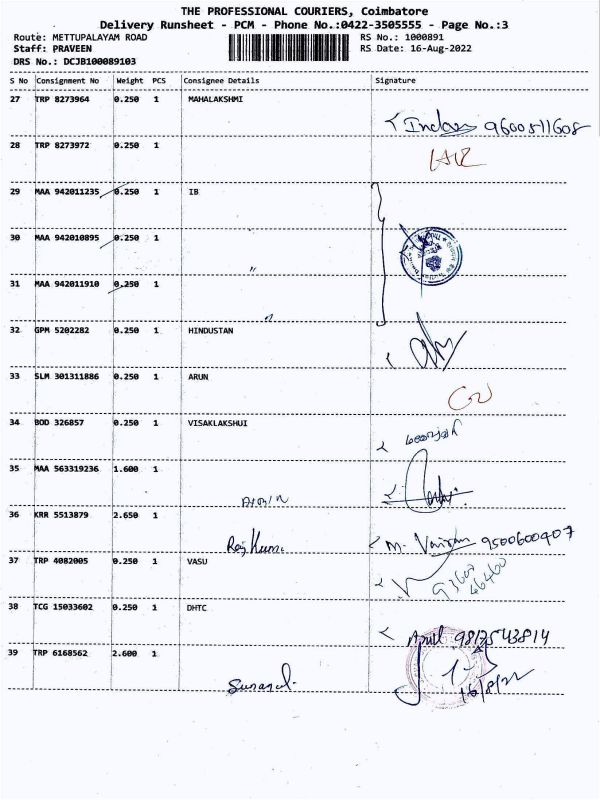 THE PROFESSIONAL COURIERS, Coimbatore
Delivery Runsheet - PCM - Phone No.:0422-3505555 - Page No.:3
Route: METTUPALAYAM ROAD RS No.: 1000891
Staff: PRAVEEN RS Date: 16-Aug-2022
DRS No.: DCJB100089103
S No Consignment No Weight PCS Consignee Details Signature
27 TRP 8273964 0.250 1 MAHALAKSHMI
9600511608
28 TRP 8273972 0.250 1
29 MAA 942011235 0.250 1 IB
30 MAA 942010895 0.250 1
"
31 MAA 942011910 0.250 1
"
32 GPM 5202282 0.250 1 HINDUSTAN
33 SLM 301311886 0.250 1 ARUN
34 BOD 326857 0.250 1 VISAKLAKSHUI
35 MAA 563319236 1.600 1
36 KRR 5513879 2.650 1
Raj Kumar M. 9500600907
37 TRP 4082005 0.250 1 VASU
93600
46460
38 TCG 15033602 0.250 1 DHTC
9817543814
39 TRP 6168562 2.600 1
16/8/22